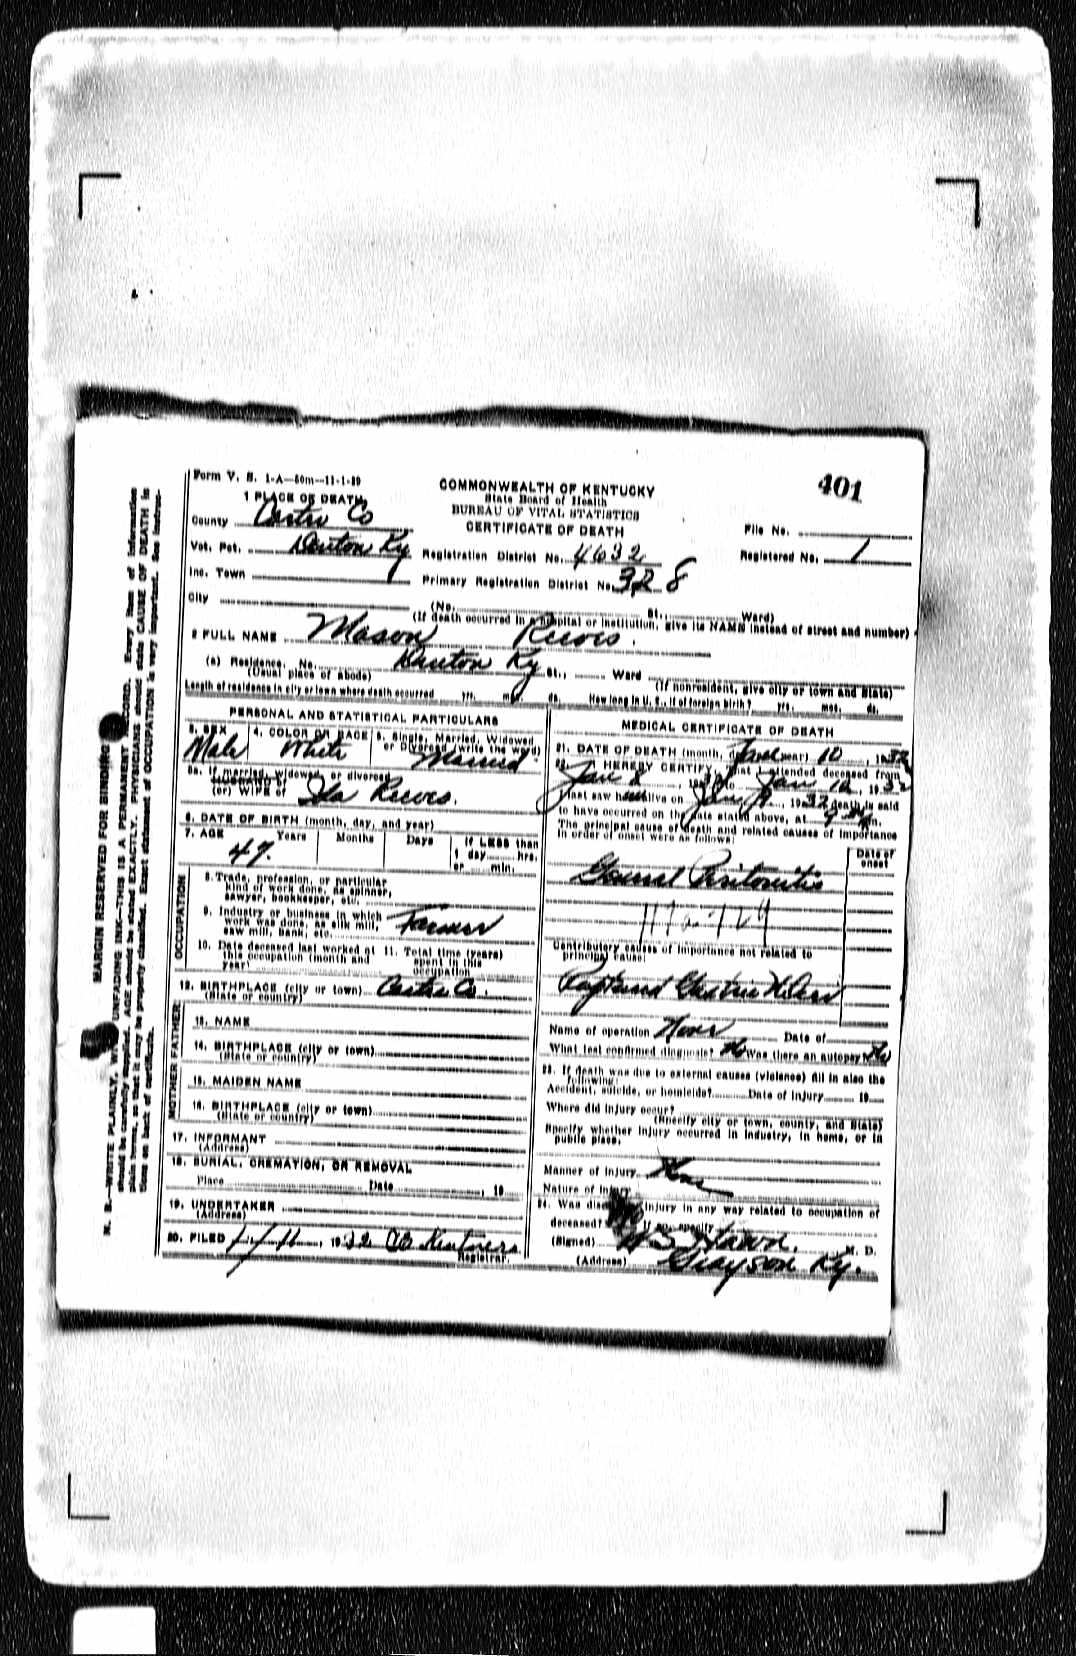 Form V. S. 1-A—50m—11-1-29
COMMONWEALTH OF KENTUCKY
State Board of Health
BUREAU OF VITAL STATISTICS
CERTIFICATE OF DEATH
401
1 PLACE OF DEATH
County Carter Co
File No.
Vot. Pct. Denton Ky
Registration District No. 4632
Registered No. 1
Inc. Town
Primary Registration District No. 328
City
(No. St., Ward)
(If death occurred in a hospital or institution, give its NAME instead of street and number)
2 FULL NAME Mason Reeves.
(a) Residence. No. Denton Ky St., Ward
(Usual place of abode)
(If nonresident, give city or town and State)
Length of residence in city or town where death occurred yrs. mos. ds. How long in U. S., if of foreign birth? yrs. mos. ds.
PERSONAL AND STATISTICAL PARTICULARS
3. SEX
Male
4. COLOR OR RACE
White
5. Single, Married, Widowed
or Divorced (write the word)
Married
5a. If married, widowed or divorced
HUSBAND of
(or) WIFE of Ida Reeves.
6. DATE OF BIRTH (month, day, and year)
7. AGE Years Months Days If LESS than
1 day hrs.
or min.
47.
OCCUPATION
8. Trade, profession, or particular
kind of work done, as spinner,
sawyer, bookkeeper, etc.
9. Industry or business in which
work was done, as silk mill,
saw mill, bank, etc. Farmer
10. Date deceased last worked at
this occupation (month and
year)
11. Total time (years)
spent in this
occupation
12. BIRTHPLACE (city or town) Carter Co.
(State or country)
FATHER
13. NAME
14. BIRTHPLACE (city or town)
(State or country)
MOTHER
15. MAIDEN NAME
16. BIRTHPLACE (city or town)
(State or country)
17. INFORMANT
(Address)
18. BURIAL, CREMATION, OR REMOVAL
Place Date , 19
19. UNDERTAKER
(Address)
20. FILED 1/11, 1932
Registrar.
MEDICAL CERTIFICATE OF DEATH
21. DATE OF DEATH (month, day, and year) 10, 1932
22. I HEREBY CERTIFY, That I attended deceased from
Jan 8, 1932 to Jan 10, 1932
I last saw him alive on Jan 1932 death is said
to have occurred on the date stated above, at m.
The principal cause of death and related causes of importance
in order of onset were as follows:
Date of
onset
General Peritonitis
Contributory causes of importance not related to
principal cause:
Ruptured Gastric Ulcer
Name of operation None Date of
What test confirmed diagnosis? No Was there an autopsy? No
23. If death was due to external causes (violence) fill in also the
following:
Accident, suicide, or homicide? Date of injury 19
Where did injury occur?
(Specify city or town, county, and State)
Specify whether injury occurred in industry, in home, or in
public place.
Manner of injury None
Nature of injury
24. Was disease or injury in any way related to occupation of
deceased? No If so, specify
(Signed) M. D.
(Address) Grayson Ky.
MARGIN RESERVED FOR BINDING
N. B.—WRITE PLAINLY, WITH UNFADING INK—THIS IS A PERMANENT RECORD. Every item of information
should be carefully supplied. AGE should be stated EXACTLY. PHYSICIANS should state CAUSE OF DEATH in
plain terms, so that it may be properly classified. Exact statement of OCCUPATION is very important. See instruc-
tions on back of certificate.